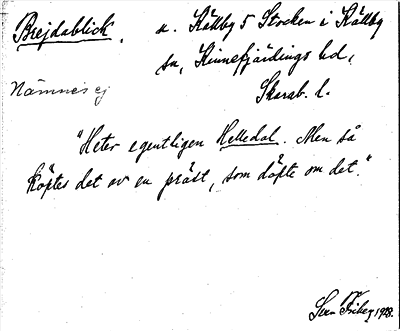 Brejdablick, u. Källby 5 Stocken i Källby
sn, Kinnefjärdings hd,
Nämnes ej
Skarab. l.
"Heter egentligen Helledal. Men så
köptes det av en präst, som döpte om det."
Sven Friberg 1928.